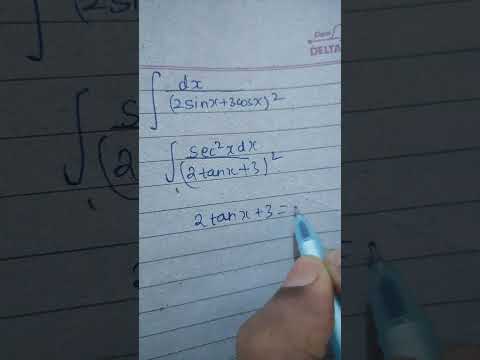 DELTA
∫ dx / (2sinx+3cosx)²
∫ sec²x dx / (2tanx+3)²
2tanx+3=